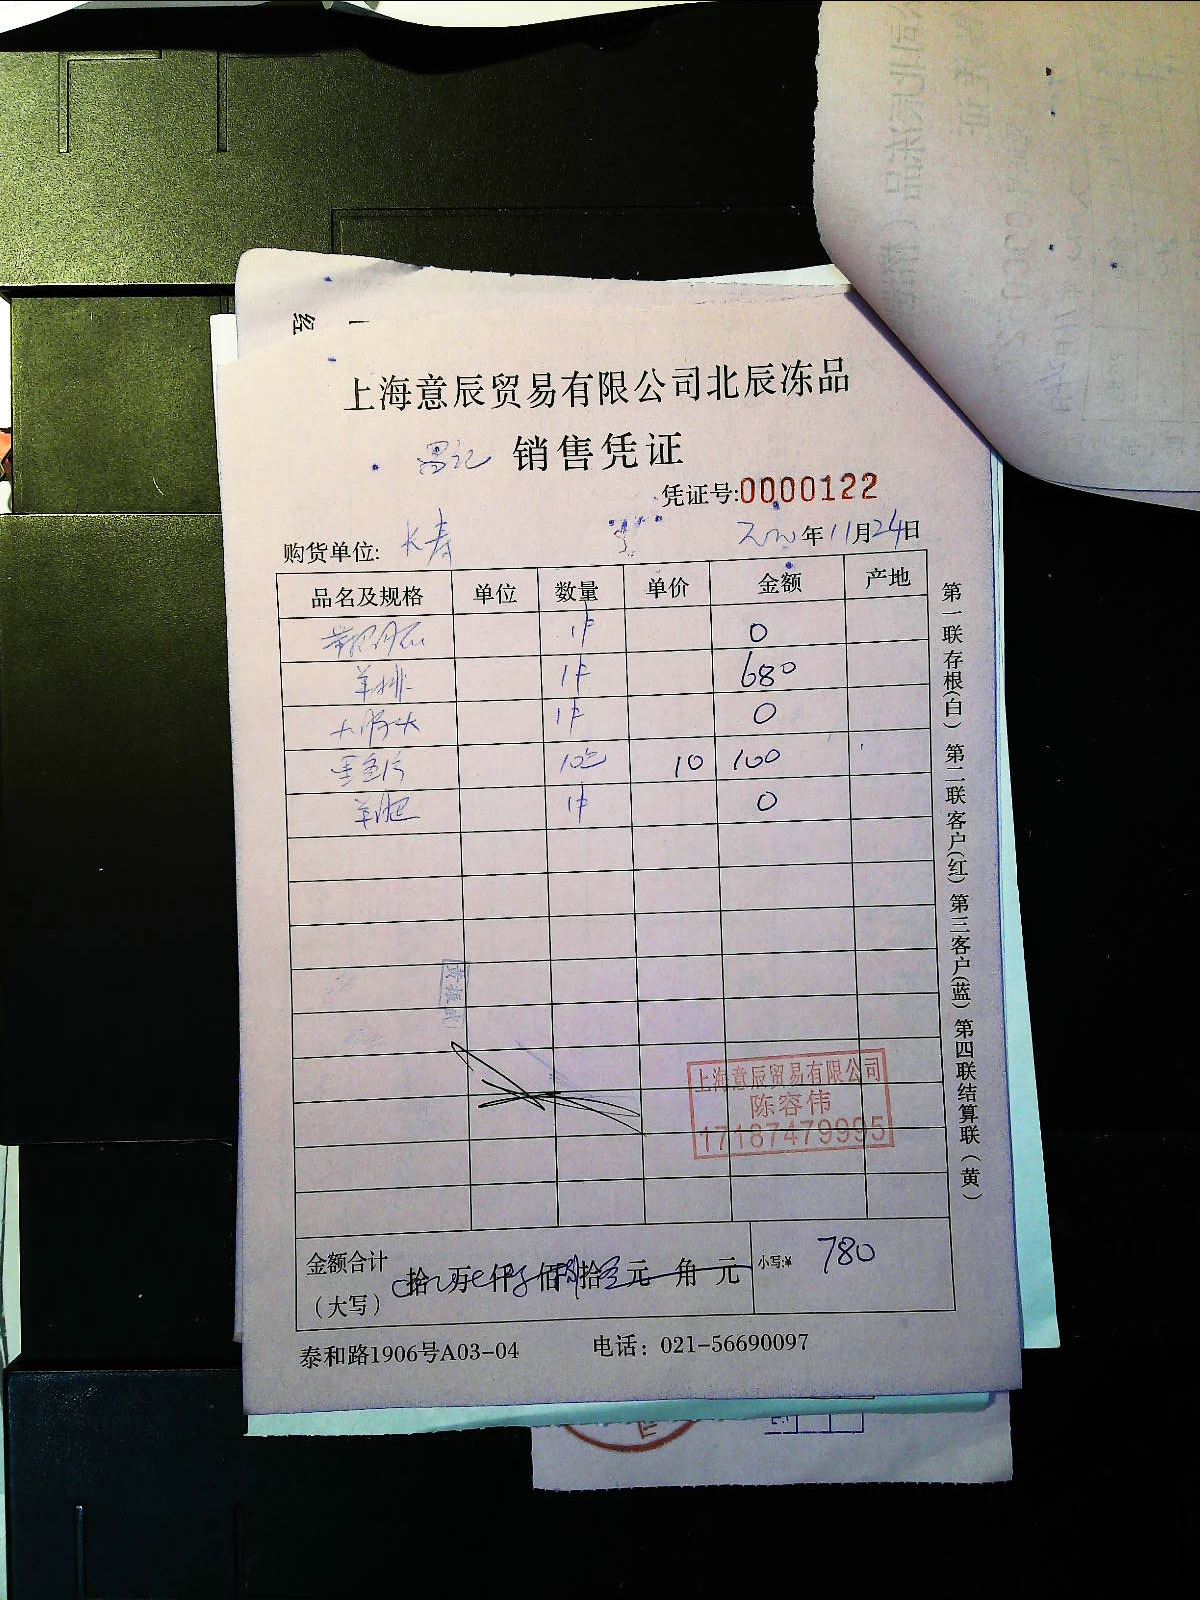 经
上海意辰贸易有限公司北辰冻品
销售凭证
凭证号:0000122
购货单位: 长寿 年11月24日
品名及规格 单位 数量 单价 金额 产地
1件 0
羊排 1件 680
1件 0
10 10 100
羊肥 1件 0
上海意辰贸易有限公司
陈容伟
17187479995
金额合计
(大写) 拾 万 仟 佰 拾 元 角 元 小写:¥ 780
泰和路1906号A03-04 电话: 021-56690097
第一联存根(白) 第二联客户(红) 第三客户(蓝) 第四联结算联(黄)